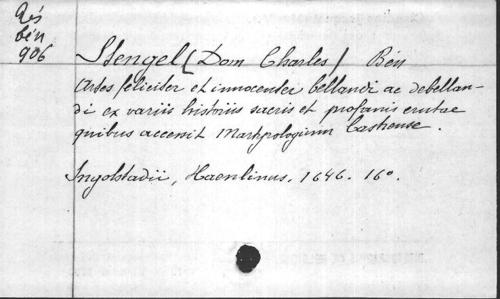 Rés
bén
906
Stengel (Dom Charles) Bén
Artes feliciter et innocenter bellandi ac debellan-
di ex variis historiis sacris et profanis erutae
quibus accessit Martyrologium Castrense.
Ingolstadii, Haenlinus, 1646. 16°.